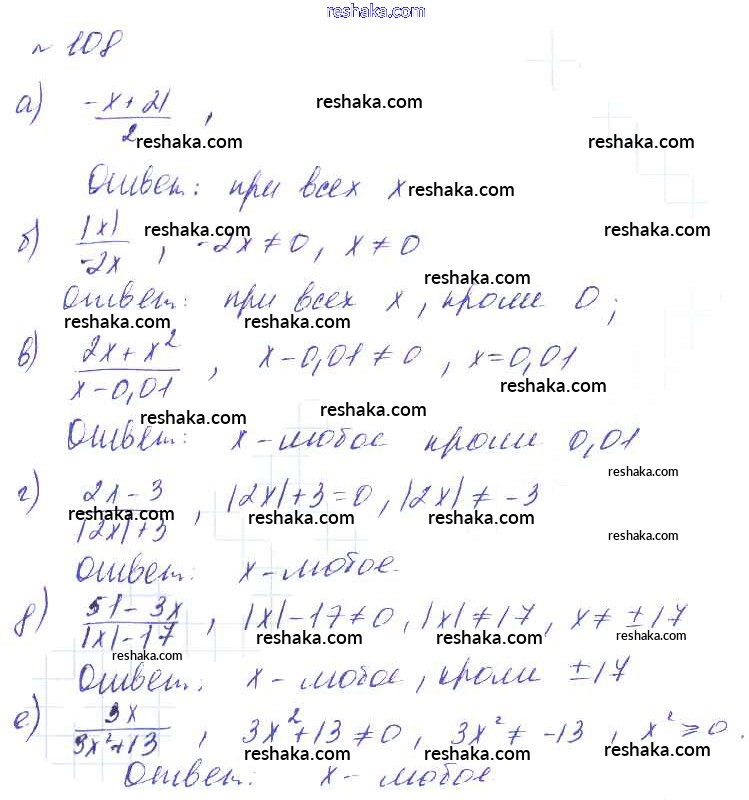 reshaka.com
№ 108
а) -x+21/2, reshaka.com
reshaka.com reshaka.com
Ответ: при всех x reshaka.com
б) |x|/-2x, reshaka.com -2x ≠ 0, x ≠ 0 reshaka.com
reshaka.com
Ответ: при всех x, кроме 0;
reshaka.com reshaka.com
в) 2x+x²/x-0,01, x-0,01 ≠ 0, x=0,01
reshaka.com
reshaka.com reshaka.com
Ответ: x - любое кроме 0,01
reshaka.com
г) 2x-3/|2x|+3, |2x|+3=0, |2x| ≠ -3
reshaka.com reshaka.com reshaka.com
reshaka.com
Ответ: x - любое
д) 51-3x/|x|-17, |x|-17≠0, |x|≠17, x≠ ±17
reshaka.com reshaka.com reshaka.com
reshaka.com
Ответ: x - любое, кроме ±17
е) 3x/3x²+13, 3x²+13 ≠ 0, 3x² ≠ -13, x² ≥ 0.
reshaka.com reshaka.com reshaka.com
Ответ: x - любое